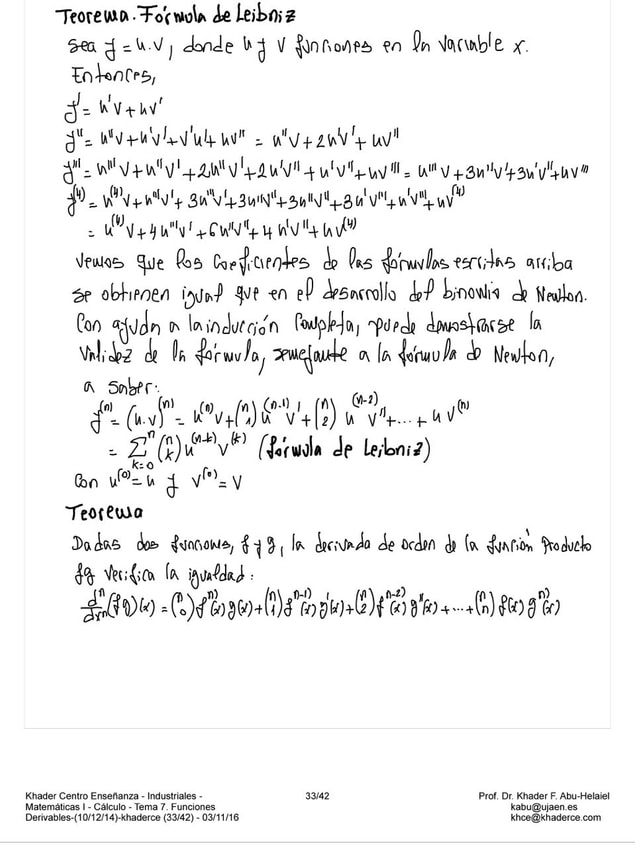 Teorema. Fórmula de Leibniz
Sea y = u.v, donde u y v funciones en la variable x.
Entonces,
y' = u'v + uv'
y'' = u''v + u'v' + v'u' + uv'' = u''v + 2u'v' + uv''
y''' = u'''v + u''v' + 2u''v' + 2u'v'' + u'v'' + uv''' = u'''v + 3u''v' + 3u'v'' + uv'''
y⁽⁴⁾ = u⁽⁴⁾v + u'''v' + 3u'''v' + 3u''v'' + 3u''v'' + 3u'v''' + u'v''' + uv⁽⁴⁾
= u⁽⁴⁾v + 4u'''v' + 6u''v'' + 4u'v''' + uv⁽⁴⁾
Vemos que los coeficientes de las fórmulas escritas arriba
se obtienen igual que en el desarrollo del binomio de Newton.
Con ayuda a la inducción completa, puede demostrarse la
validez de la fórmula, semejante a la fórmula de Newton,
a saber:
y⁽ⁿ⁾ = (u.v)⁽ⁿ⁾ = u⁽ⁿ⁾v + (n 1) u⁽ⁿ⁻¹⁾v' + (n 2) u⁽ⁿ⁻²⁾v'' + ... + uv⁽ⁿ⁾
= Σ k=0 n (n k) u⁽ⁿ⁻ᵏ⁾v⁽ᵏ⁾ (fórmula de Leibniz)
Con u⁽⁰⁾ = u y v⁽⁰⁾ = v
Teorema
Dadas dos funciones, f y g, la derivada de orden de la función producto
fg verifica la igualdad:
dⁿ/dxⁿ (fg)(x) = (n 0) fⁿ⁾(x) g(x) + (n 1) fⁿ⁻¹⁾(x) g'(x) + (n 2) fⁿ⁻²⁾(x) g''(x) + ... + (n n) f(x) gⁿ⁾(x)
Khader Centro Enseñanza - Industriales -
Matemáticas I - Cálculo - Tema 7. Funciones
Derivables-(10/12/14)-khaderce (33/42) - 03/11/16
33/42
Prof. Dr. Khader F. Abu-Helaiel
kabu@ujaen.es
khce@khaderce.com